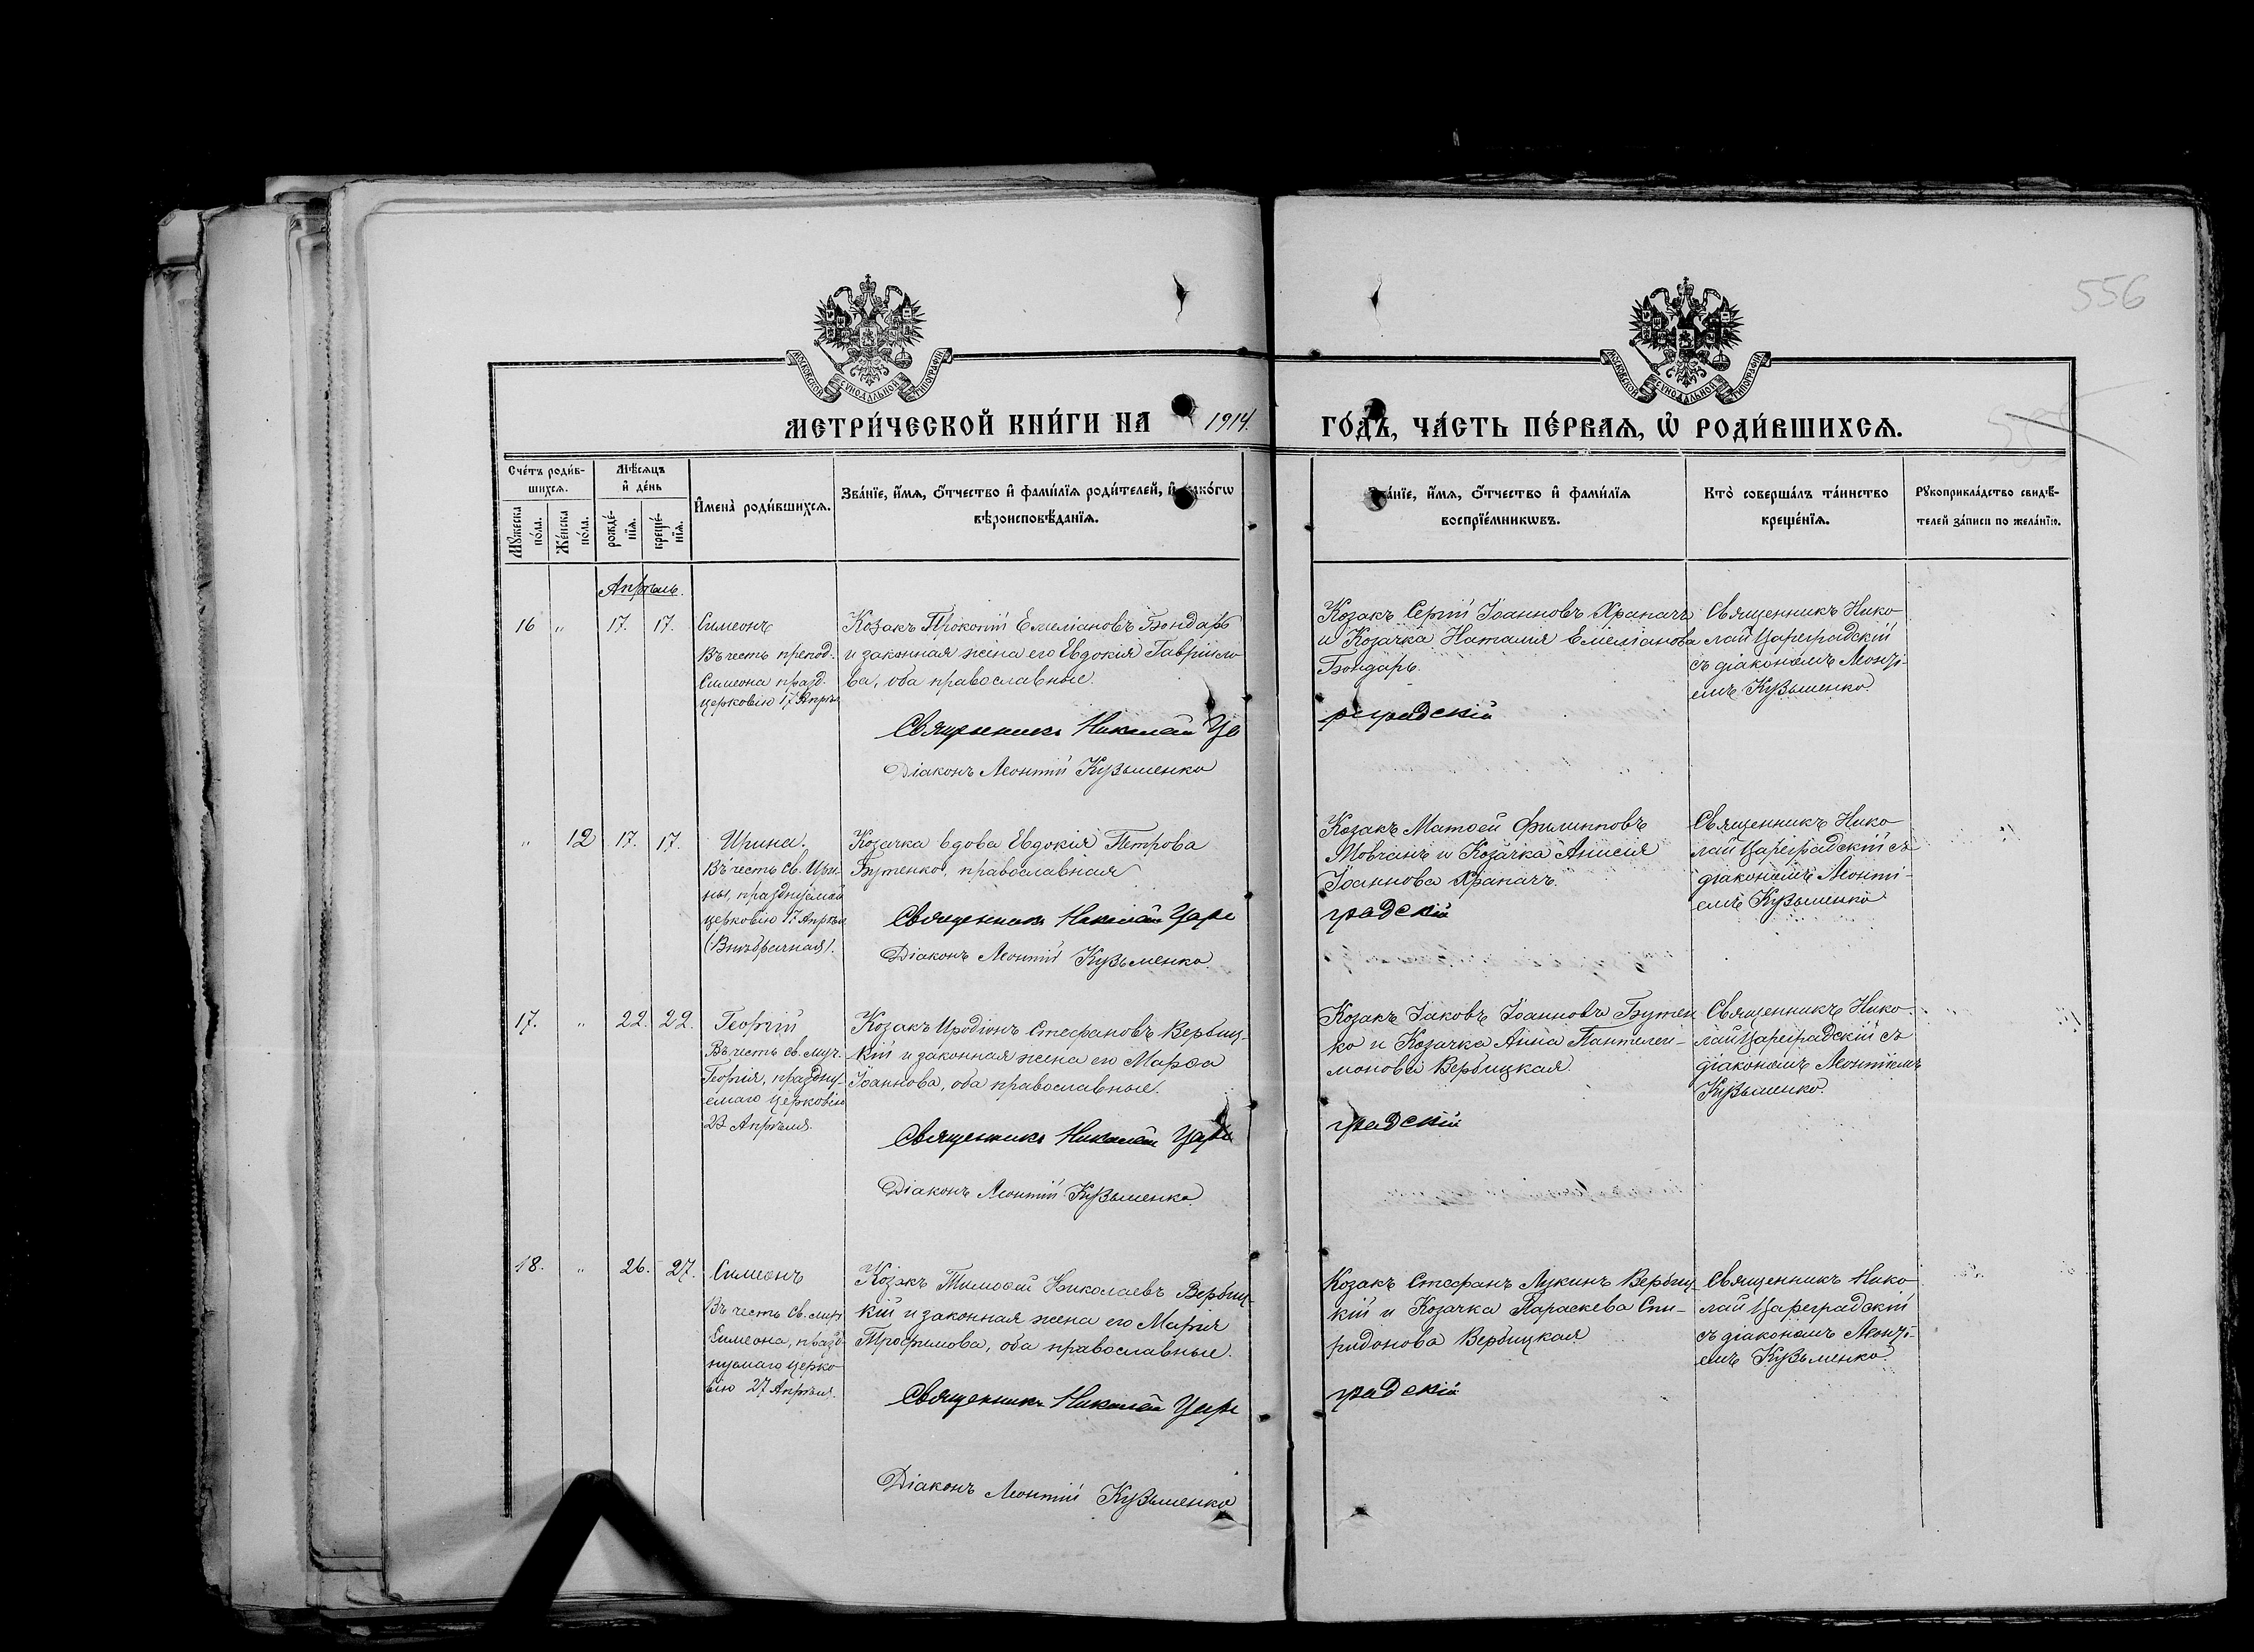 556
МОСКОВСКОЙ СѴНОДАЛЬНОЙ ТИПОГРАФІИ
МОСКОВСКОЙ СѴНОДАЛЬНОЙ ТИПОГРАФІИ
МЕТРИ́ЧЕСКОЙ КНИ́ГИ НА 1914. ГО́ДЪ, ЧА́СТЬ ПЕ́РВАЯ, Ѡ РОДИ́ВШИХСЯ.
Сче́тъ роди́в-
шихся.
Мѣ́сяцъ
и де́нь
Мꙋ́жеска
по́ла.
Же́нска
по́ла.
рожде́-
нїя.
креще́-
нїя.
Имена̀ роди́вшихся.
Зва́нїе, и́мя, о́тчество и фами́лїя роди́телей, и како́гѡ
вѣроисповѣ́данїя.
Зва́нїе, и́мя, о́тчество и фами́лїя
воспрїе́мникѡвъ.
Кто̀ соверша́лъ та́инство
креще́нїя.
Рꙋкоприкла́дство свидѣ́-
телей за́писи по жела́нїю.
Апрѣль.
16 „ 17. 17.
Симеонъ
Въ честь препод.
Симеона празд.
церковію 17 Апрѣл
Козакъ Прокопій Емеліановъ Бондарь
и законная жена его Евдокія Гавріило
ва, оба православные.
Священникъ НиколайЦа
реградскій
Діаконъ Леонтій Кузьменко
Козакъ Сергій Іоанновъ Храпачъ
и Козачка Наталия Емеліанова
Бондарь.
Священникъ Нико
лай Цареградскій
съ діакономъ Леонті-
емъ Кузьменко.
„ 12 17. 17.
Ирина.
Въ честь св. Ири-
ны, празднуемой
церковію 17 Апрѣля
(Внѣбрачная).
Козачка вдова Евдокія Петрова
Бутенко, православная
Священникъ Николай Царе
градскій
Діаконъ Леонтій Кузьменко.
Козакъ Матѳей Филипповъ
Мовчанъ и Козачка Анисія
Іоаннова Храпачъ.
Священникъ Нико
лай Цареградскій съ
діакономъ Леонті-
емъ Кузьменко
17. „ 22. 22.
Георгій
Въ честь св. муч.
Георгія, праздну-
емаго церковію
23 Апрѣля.
Козакъ Иродіонъ Стефановъ Вербиц-
кій и законная жена его Марѳа
Іоаннова, оба православные.
Священникъ Николай Царе
градскій
Діаконъ Леонтій Кузьменко
Козакъ Іаковъ Іоанновъ Бутен
ко и Козачка Анна Пантелеи-
монова Вербицкая.
Священникъ Нико-
лай Цареградскій съ
діакономъ Леонтіемъ
Кузьменко.
18. „ 26. 27.
Симеонъ
Въ честь св.
Симеона, празд-
нуемаго церко
вію 27 Апрѣля.
Козакъ Тимоѳей Николаевъ Вербиц-
кій и законная жена его Марія
Трофимова, оба православные.
Священникъ Николай Царе
градскій
Діаконъ Леонтій Кузьменко
Козакъ Стефанъ Лукинъ Вербиц-
кій и Козачка Параскева Спи-
ридонова Вербицкая
Священникъ Нико
лай Цареградскій
съ діакономъ Леонті-
емъ Кузьменко.